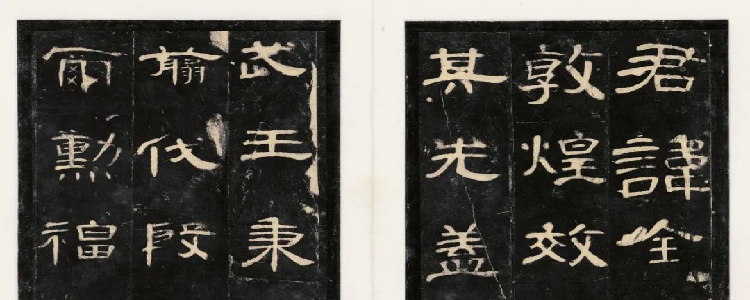 君諱全
敦煌效
其先盖
武王秉
翦伐殷
爾勳福